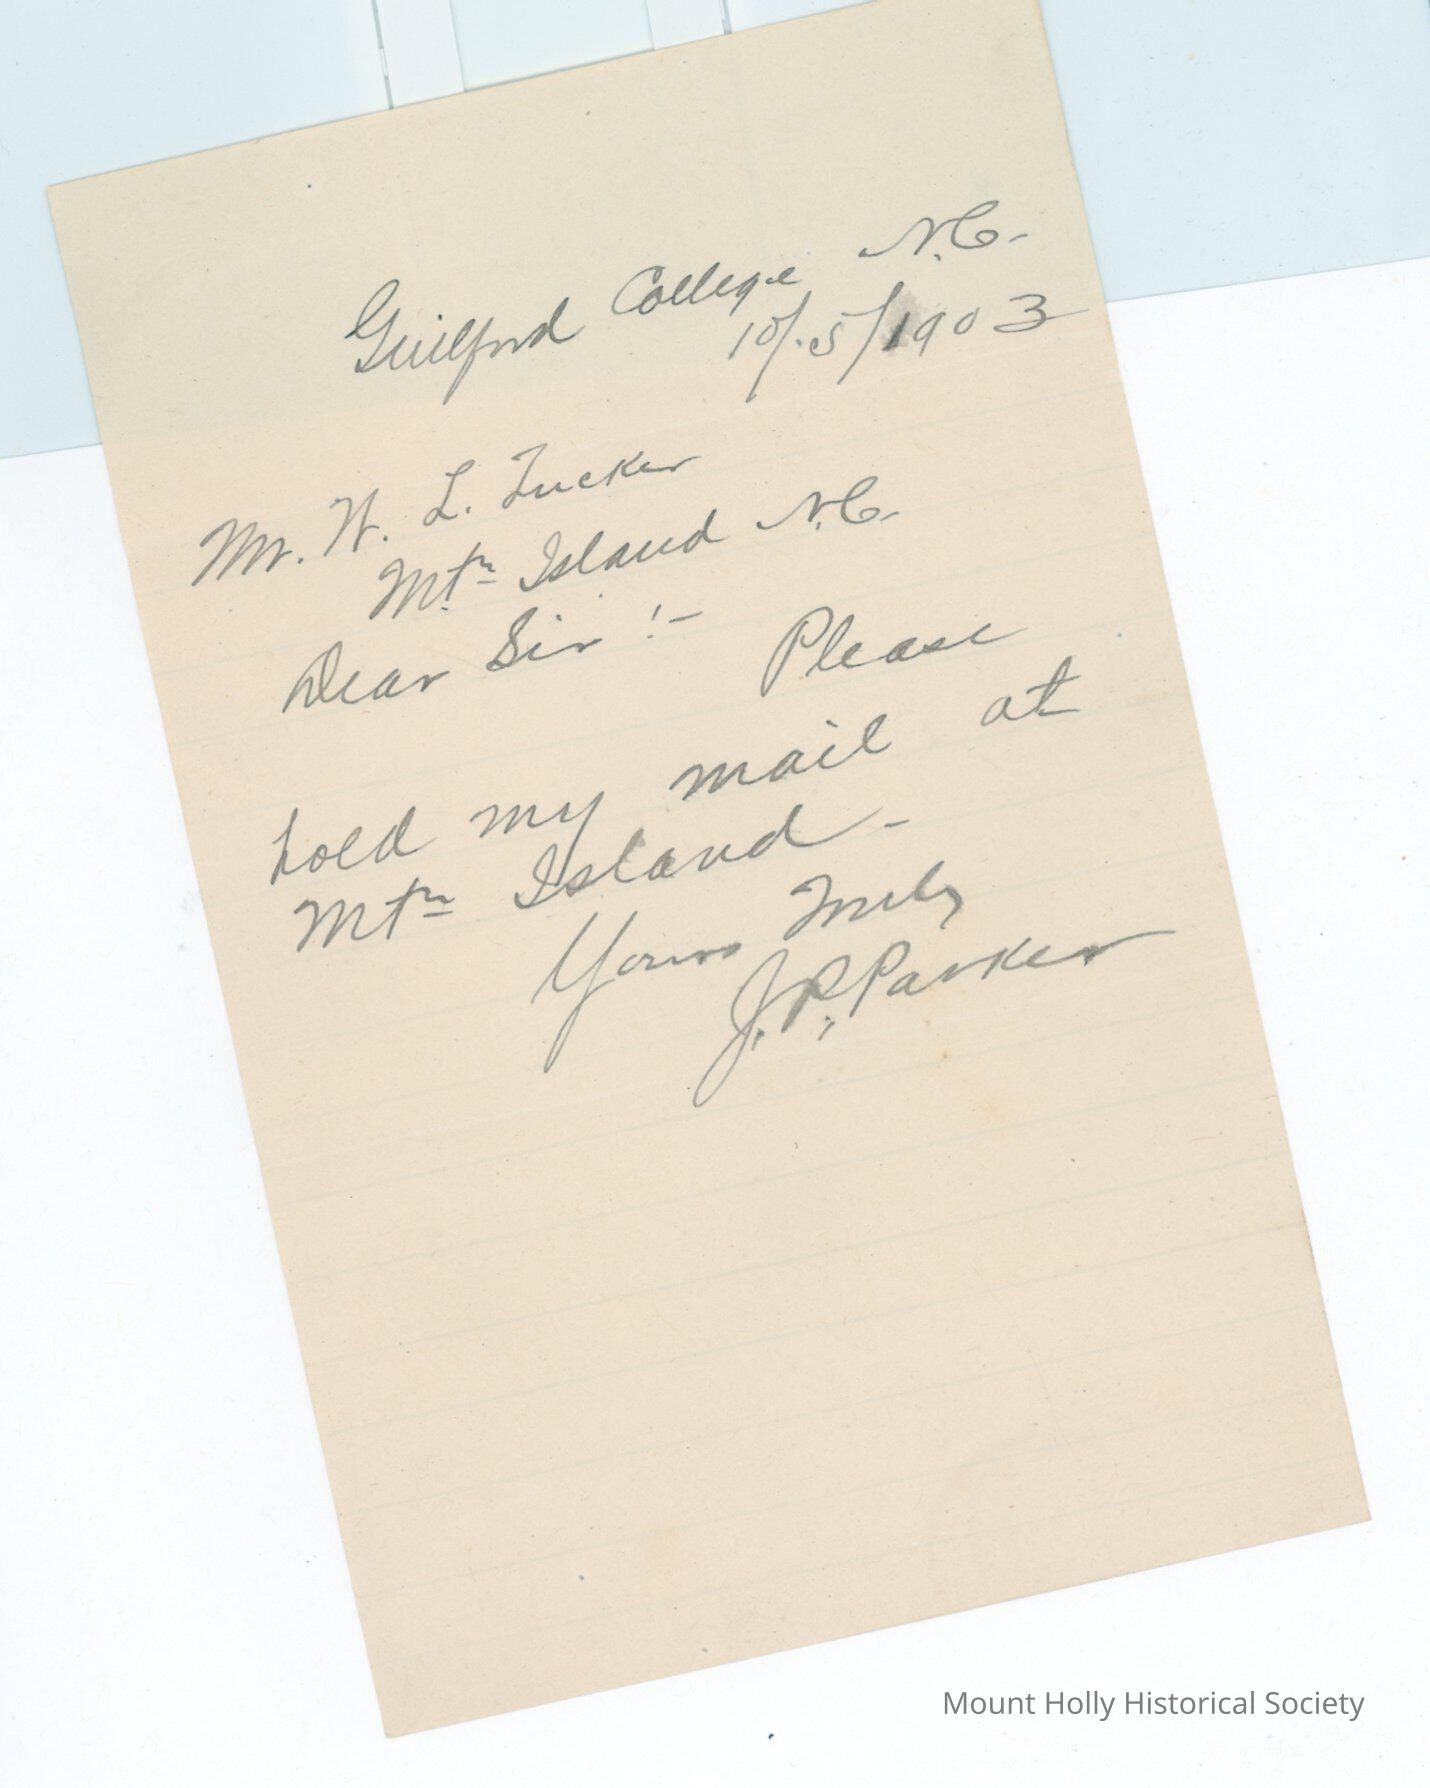 Guilford College N.C.
10/.5/1903
Mr. W. L. Tucker
Mtn Island N.C.
Dear Sir!-
Please
hold my mail at
Mtn Island-
Yours Truly
J. P. Parker
Mount Holly Historical Society